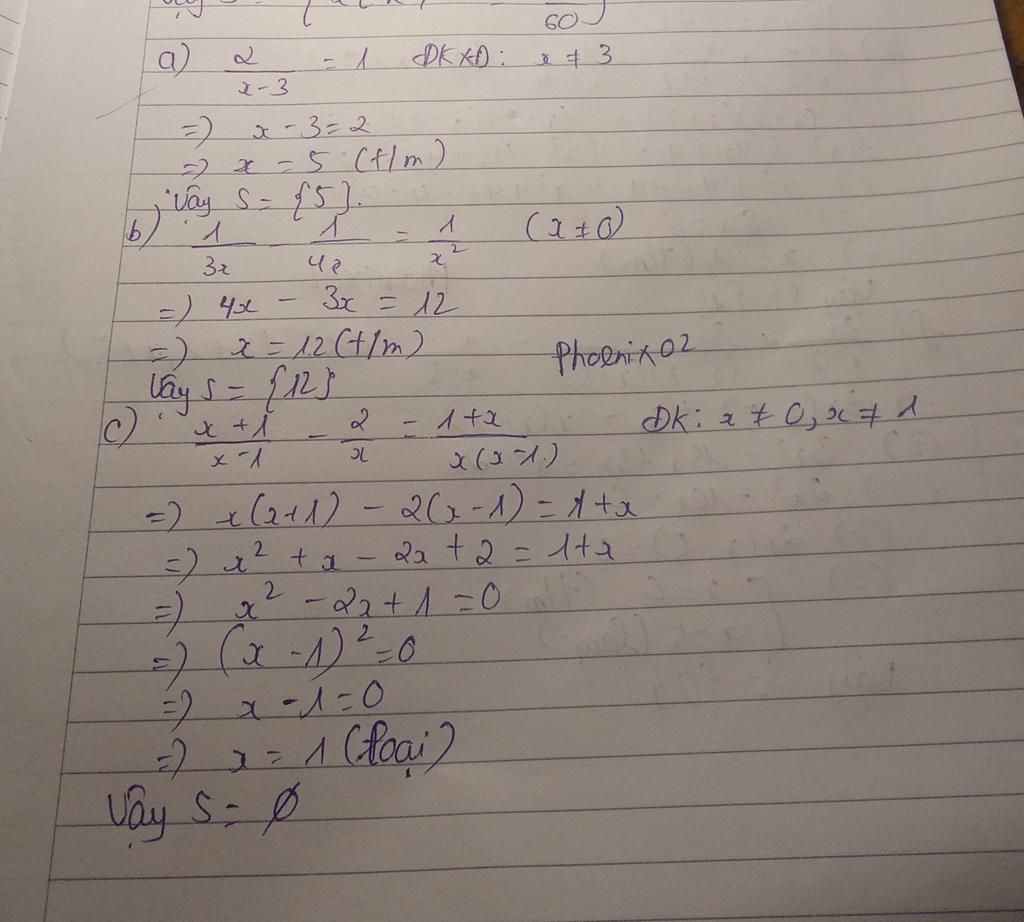 60
a) 2/(x-3) = 1 ĐKXĐ: x ≠ 3
=) x - 3 = 2
=) x = 5 (t/m)
Vậy S = {5}.
b) 1/3x - 1/4x = 1/x² (x ≠ 0)
=) 4x - 3x = 12
=) x = 12 (t/m)
Phoenix02
Vậy S = {12}
c) (x+1)/(x-1) - 2/x = (1+x)/(x(x-1)) ĐK: x ≠ 0, x ≠ 1
=) x(x+1) - 2(x-1) = 1+x
=) x² + x - 2x + 2 = 1+x
=) x² - 2x + 1 = 0
=) (x - 1)² = 0
=) x - 1 = 0
=) x = 1 (loại)
Vậy S = ∅